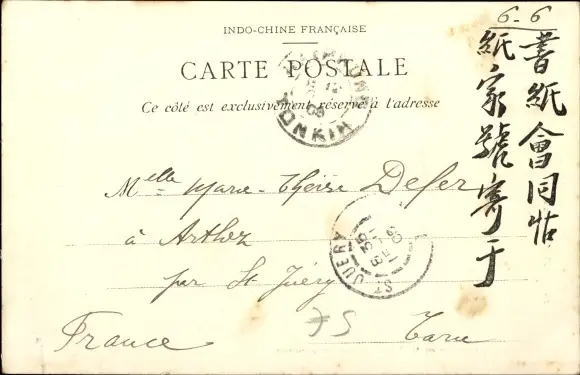 6-6
INDO-CHINE FRANÇAISE
CARTE POSTALE
Ce côté est exclusivement réservé à l'adresse
TONKIN
書紙會同帖
紙家號寄于
Melle Marie-Thérèse Defer
à Arthez
par St Juéry
ST JUERY
France
Tarn